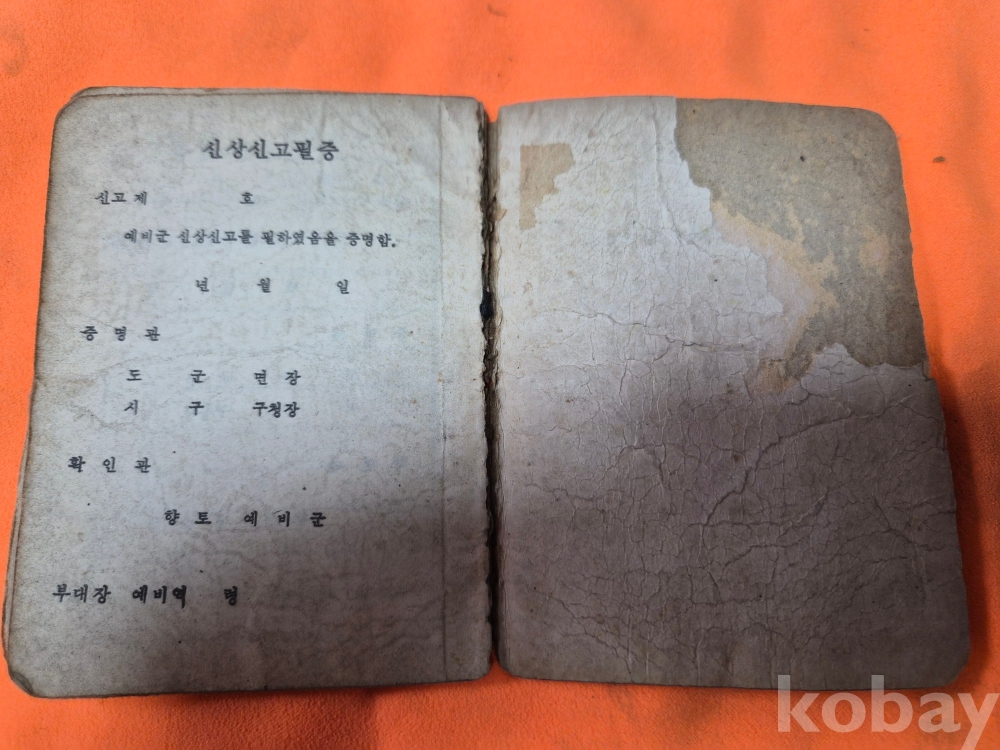 신상신고필증
신고제 호
예비군 신상신고를 필하였음을 증명함.
년 월 일
증명관
도 군 면장
시 구 구청장
확인관
향토 예비군
부대장 예비역 령
kobay